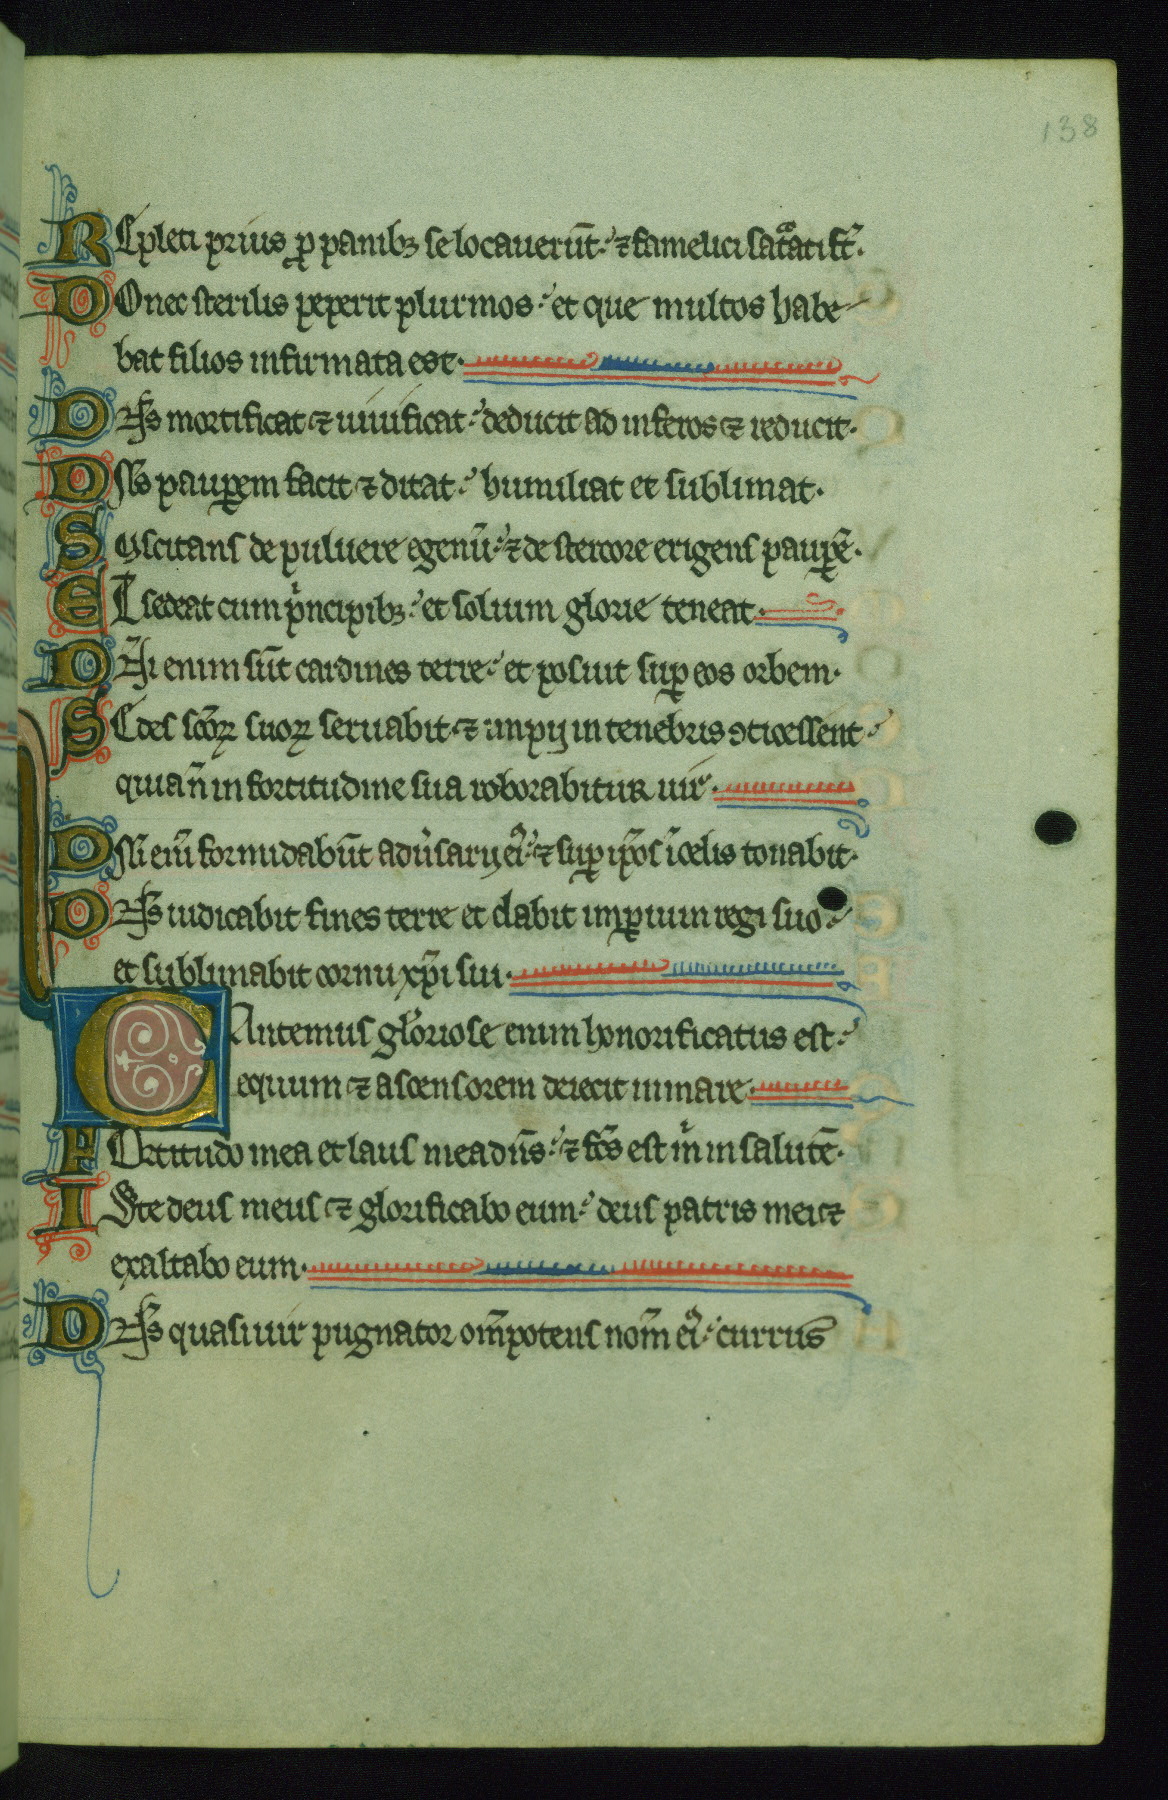 138
REpleti prius ꝓ panibꝫ se locauerūt. ⁊ famelici saᵗᵃati sꝭt.
DOnec sterilis peperit plurimos. et que multos habe
bat filios infirmata est.
Dn̄s mortificat ⁊ uiuificat. deducit ad inferos ⁊ reducit.
Dn̄s pauꝑem facit ⁊ ditat. humiliat et sublimat.
Suscitans de puluere egenū. ⁊ de stercore erigens pauꝑē.
Et sedeat cum pⁱncipibꝫ. et solium glorie teneat.
Dn̄i enim sūt cardines terre. et posuit suꝑ eos orbem.
SEdes sc̄oꝝ suoꝝ seruabit ⁊ impij in tenebris ꝯticessent
quia n̄ in fortitudine sua roborabitur uir.
Dn̄m formidabūt adūsarij eiꝰ. ⁊ suꝑ ip̄os ī celis tonabit.
Dn̄s iudicabit fines terre et dabit imꝑium regi suo
et sublimabit cornu xp̄i sui.
CAntemus gl̄oriose enim honorificatus est
equum ⁊ ascensorem deiecit in mare.
FOrtitudo mea et laus mea dn̄s. ⁊ fc̄s est mⁱ in salutē.
ISte deus meus ⁊ glorificabo eum. deus patris mei ⁊
exaltabo eum.
Dn̄s quasi uir pugnator om̄potens nom̄ eiꝰ. currus